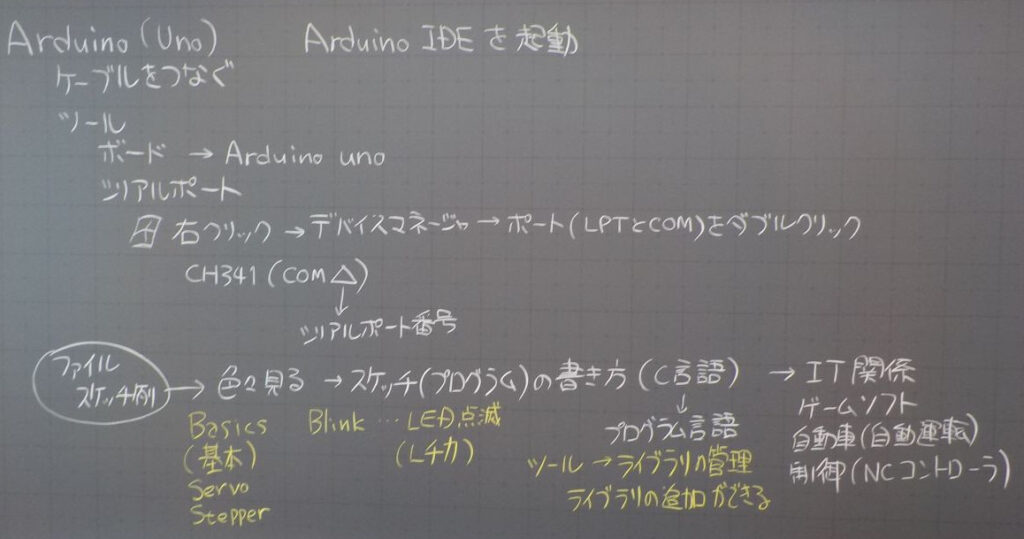 Arduino (Uno) Arduino IDE を起動
ケーブルをつなぐ
ツール
ボード → Arduino uno
シリアルポート
田 右クリック → デバイスマネージャ → ポート(LPTとCOM)をダブルクリック
CH341 (COM △)
↓
シリアルポート番号
ファイル
スケッチ例 → 色々見る → スケッチ(プログラム)の書き方 (C言語) → IT関係
Basics
(基本)
Servo
Stepper
Blink … LED点滅
(Lチカ)
↓
プログラム言語
ツール → ライブラリの管理
ライブラリの追加ができる
ゲームソフト
自動車(自動運転)
制御(NCコントローラ)